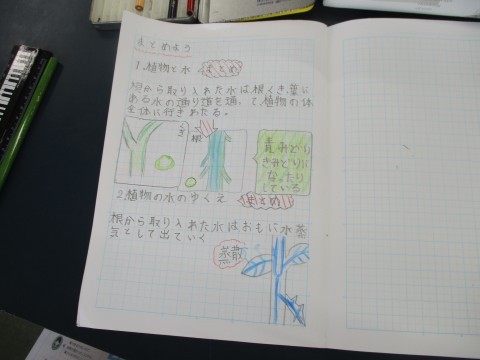 まとめよう
1.植物と水 まとめ
根から取り入れた水は根くき、葉に
ある水の通り道を通って植物の体
全体に行きわたる。
くき
根
青みどり
きみどりに
なったり
している
2.植物の水のゆくえ まとめ
根から取り入れた水はおもに水蒸
気として出ていく
蒸散